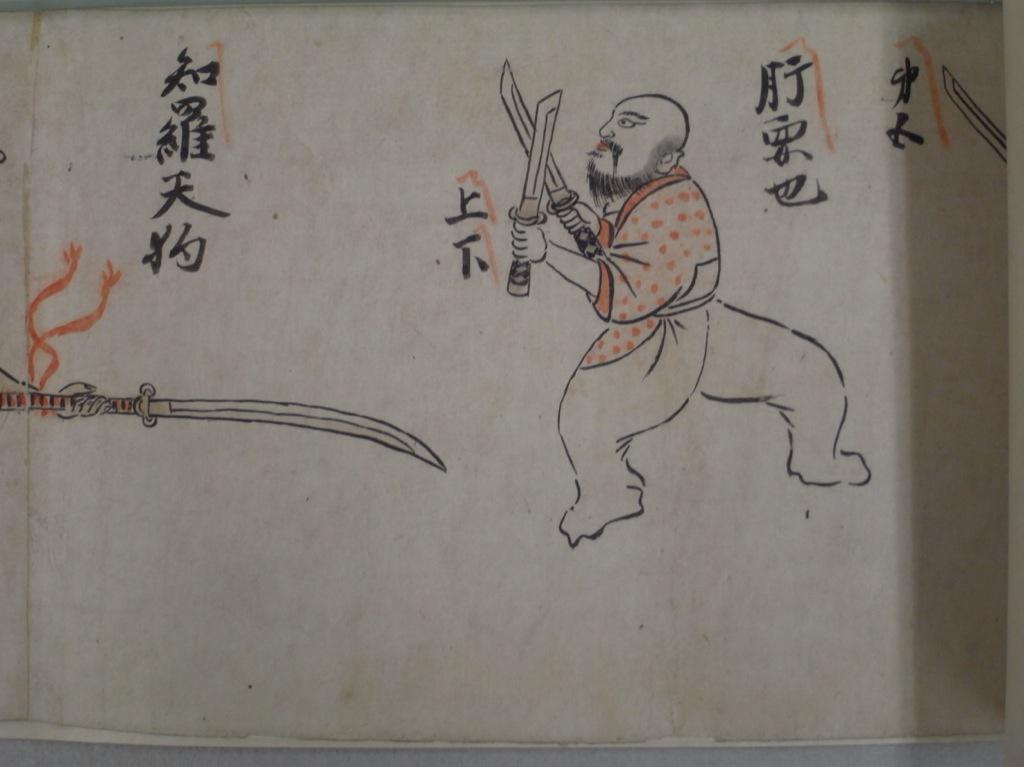 肝要也
上下
知羅天狗